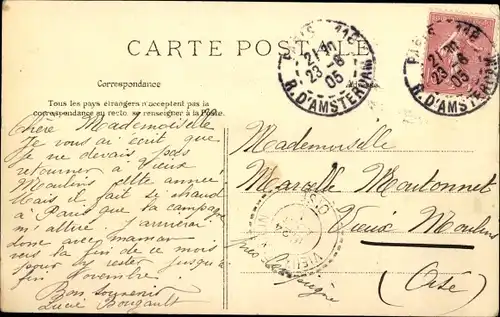 CARTE POSTALE
PARIS 118
21-10
23-8
05
R. D'AMSTERDAM
PARIS 118
21-10
23-8
05
R. D'AMSTERDAM
Correspondance
Tous les pays étrangers n'acceptent pas la
correspondance au recto, se renseigner à la Poste.
Chère Mademoiselle
Je vous ai écrit que
je ne devais pas
retourner à Vieux
Moulins cette année!
Mais il fait si chaud
à Paris que la campagne
m'attire. J'arriverai
donc avec maman
vers la fin de ce mois
pour y rester jusqu'à
fin Novembre.
Bon souvenir
Lucie Bougault
Mademoiselle
Marcelle Moutonnet
Vieux Moulins
près Compiègne
(Oise)
OISE